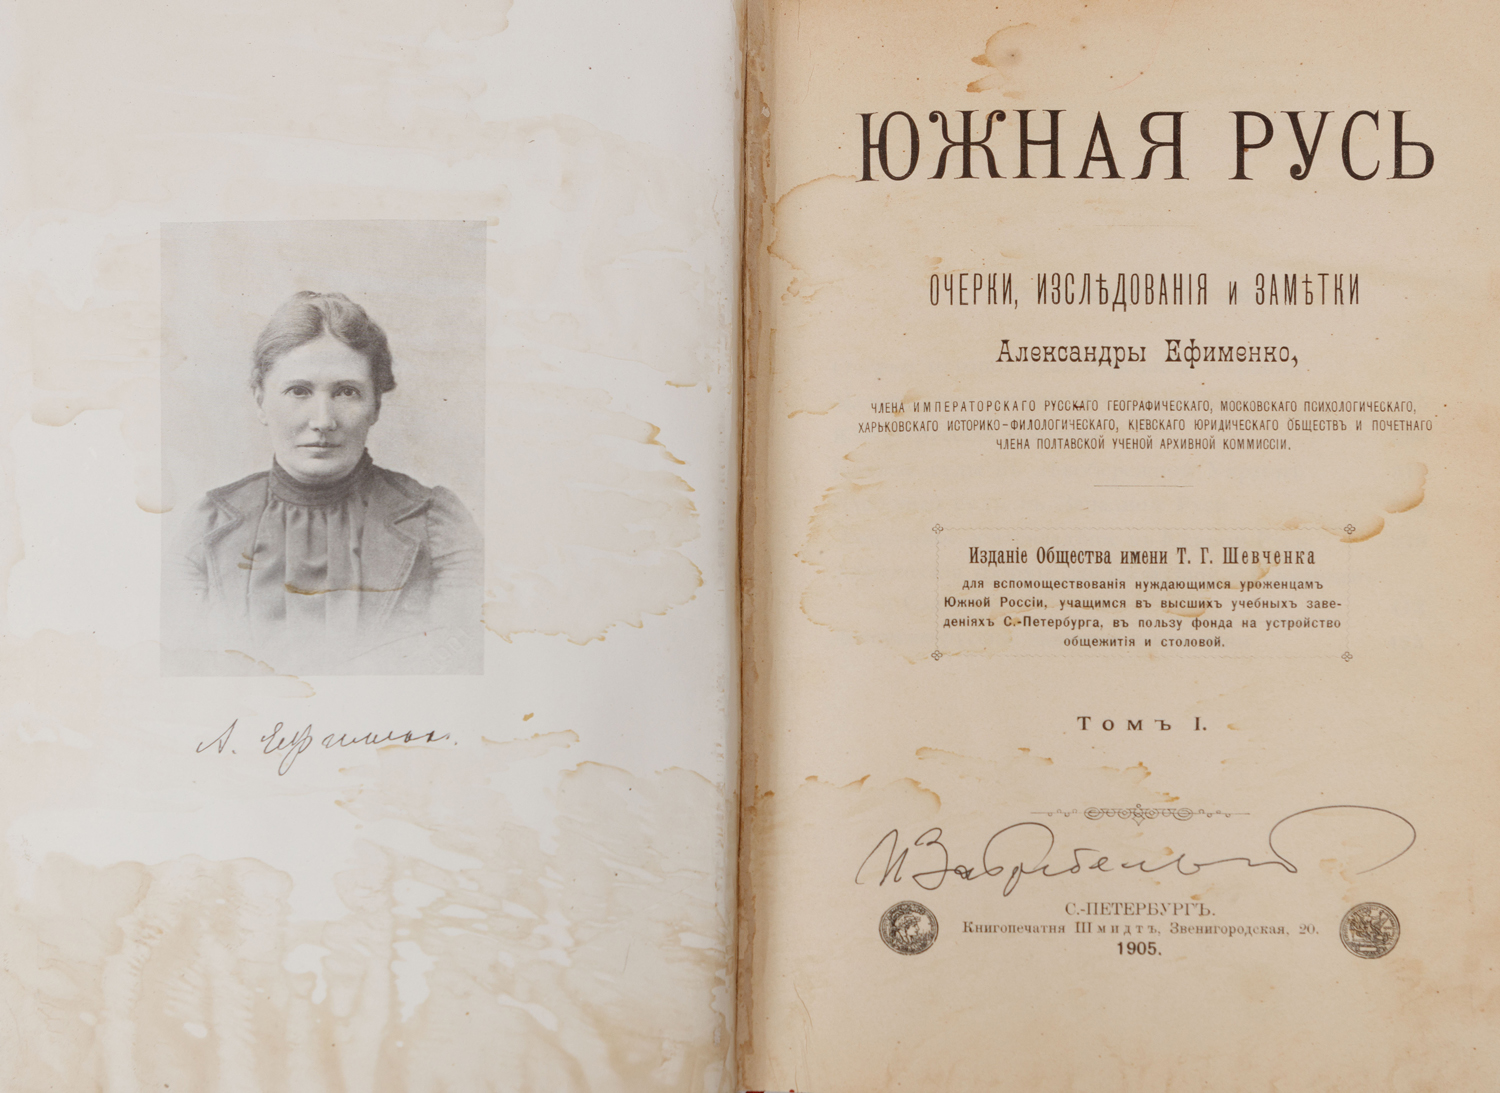 А. Ефименко.
ЮЖНАЯ РУСЬ
ОЧЕРКИ, ИЗСЛѢДОВАНІЯ и ЗАМѢТКИ
Александры Ефименко,
ЧЛЕНА ИМПЕРАТОРСКАГО РУССКАГО ГЕОГРАФИЧЕСКАГО, МОСКОВСКАГО ПСИХОЛОГИЧЕСКАГО,
ХАРЬКОВСКАГО ИСТОРИКО-ФИЛОЛОГИЧЕСКАГО, КІЕВСКАГО ЮРИДИЧЕСКАГО ОБЩЕСТВЪ И ПОЧЕТНАГО
ЧЛЕНА ПОЛТАВСКОЙ УЧЕНОЙ АРХИВНОЙ КОММИССІИ.
Изданіе Общества имени Т. Г. Шевченка
для вспомоществованія нуждающимся уроженцамъ
Южной Россіи, учащимся въ высшихъ учебныхъ заве-
деніяхъ С.-Петербурга, въ пользу фонда на устройство
общежитія и столовой.
Томъ I.
С.-ПЕТЕРБУРГЪ.
Книгопечатня Шмидтъ, Звенигородская, 20.
1905.